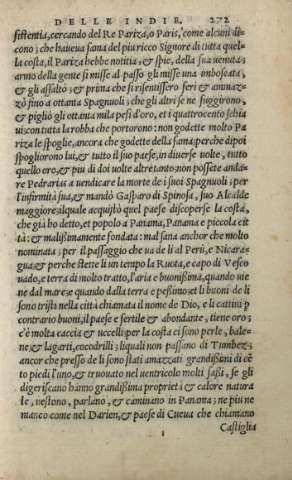 DELLE INDIE. 272
sistentia, cercando del Re Pariza, o Paris, come alcuni di-
cono; che haueua fama del piu ricco Signore di tutta quel-
la costa, il Pariza hebbe notitia, & spie, della sua uenuta;
armo della gente si misse al passo gli misse una imboscata,
& gli assaltò; & prima che si risentissero feri & ammaz-
zò fino a ottanta Spagnuoli; che gli altri se ne fuggirono,
& pigliò gli ottanta mila pesi d'oro, et i quattrocento schia
ui con tutta la robba che portorono: non godette molto Pa
riza le spoglie, ancora che godette della fama: perche dipoi
spogliorono lui, & tutto il suo paese, in diuerse uolte, tutto
quello oro, & piu di doi uolte altretanto: non possete anda-
re Pedrarias a uendicare la morte de i suoi Spagnuoli; per
l'infirmità sua, & mandò Gasparo di Spinosa, suo Alcalde
maggiore, alquale acquistò quel paese discoperse la costa,
che già ho detto, et popolo a Panama, Panama e piccola cit
tà: & malissimamente fondata: mal sana anchor che molto
nominata; per il passaggio che ua de li al Perù, & Nicara-
gua, & perche stette li un tempo la Ruota, e capo di Vesco
uado, e terra di molto tratto, l'aria e buonissima, quando uie
ne dal mare: & quando dalla terra e pessimo: et li buoni de li
sono tristi nella città chiamata il nome de Dio, e li cattiui p
contrario buoni, il paese e fertile & abondante, tiene oro;
c'è molta caccia & uccelli: per la costa ci sono perle, bale-
ne, & lagarti, cocodrilli; iquali non passano di Tumbez,
ancor che presso de li sono stati amazzati grandissimi di cē
to piedi l'uno, & truouato nel uentricolo molti sassi, se gli
digeriscano hanno grandissima proprietà & calore natura
le, uestono, parlano, & caminano in Panama; ne piu ne
manco come nel Darien, & paese di Cueua che chiamano
Castiglia